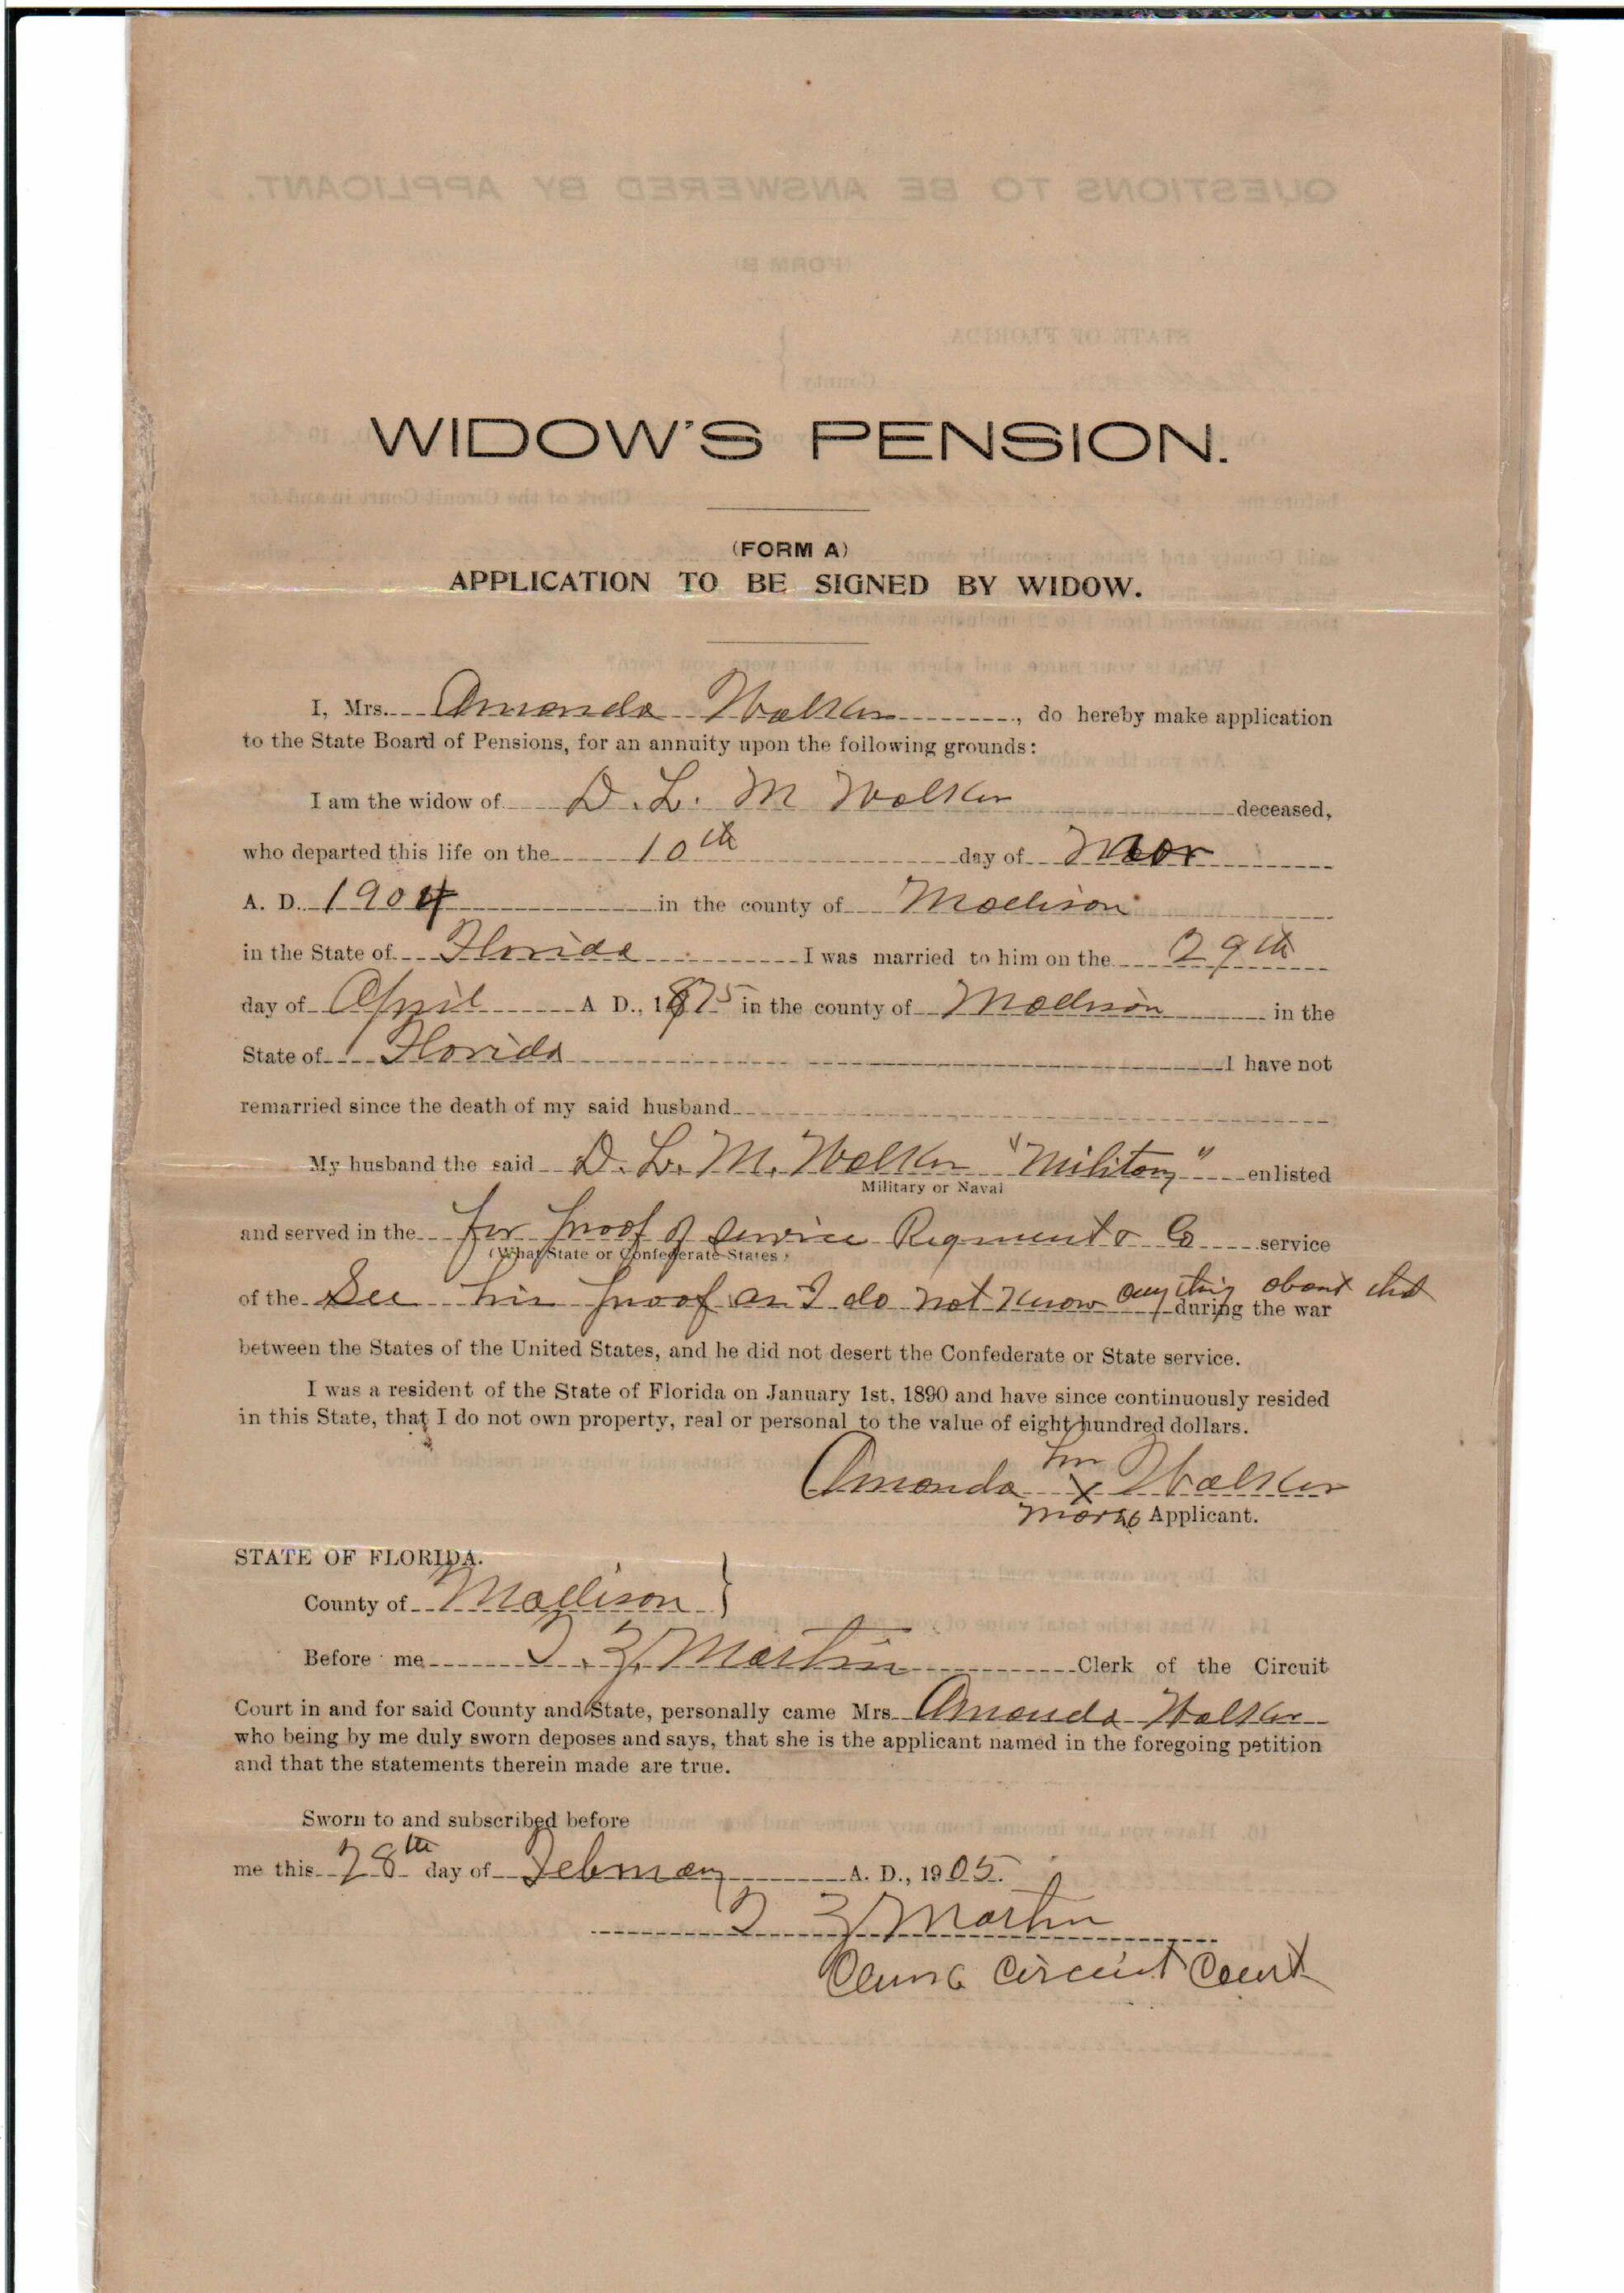 WIDOW'S PENSION.
(FORM A)
APPLICATION TO BE SIGNED BY WIDOW.
I, Mrs. Amanda Walker, do hereby make application
to the State Board of Pensions, for an annuity upon the following grounds:
I am the widow of D. L. M Walker deceased,
who departed this life on the 10th day of Mar
A. D. 1904 in the county of Madison
in the State of Florida I was married to him on the 29th
day of April A D., 1875 in the county of Madison in the
State of Florida I have not
remarried since the death of my said husband
My husband the said D. L. M. Walker "Military" enlisted
Military or Naval
and served in the for proof of service Regiment & Co service
(What State or Confederate States)
of the See his proof as I do not know any thing about that during the war
between the States of the United States, and he did not desert the Confederate or State service.
I was a resident of the State of Florida on January 1st, 1890 and have since continuously resided
in this State, that I do not own property, real or personal to the value of eight hundred dollars.
Amanda her x Walker
mark Applicant.
STATE OF FLORIDA.
County of Madison }
Before me T. Z. Martin Clerk of the Circuit
Court in and for said County and State, personally came Mrs. Amanda Walker
who being by me duly sworn deposes and says, that she is the applicant named in the foregoing petition
and that the statements therein made are true.
Sworn to and subscribed before
me this 28th day of February A. D., 1905.
T Z Martin
Clerk Circuit Court